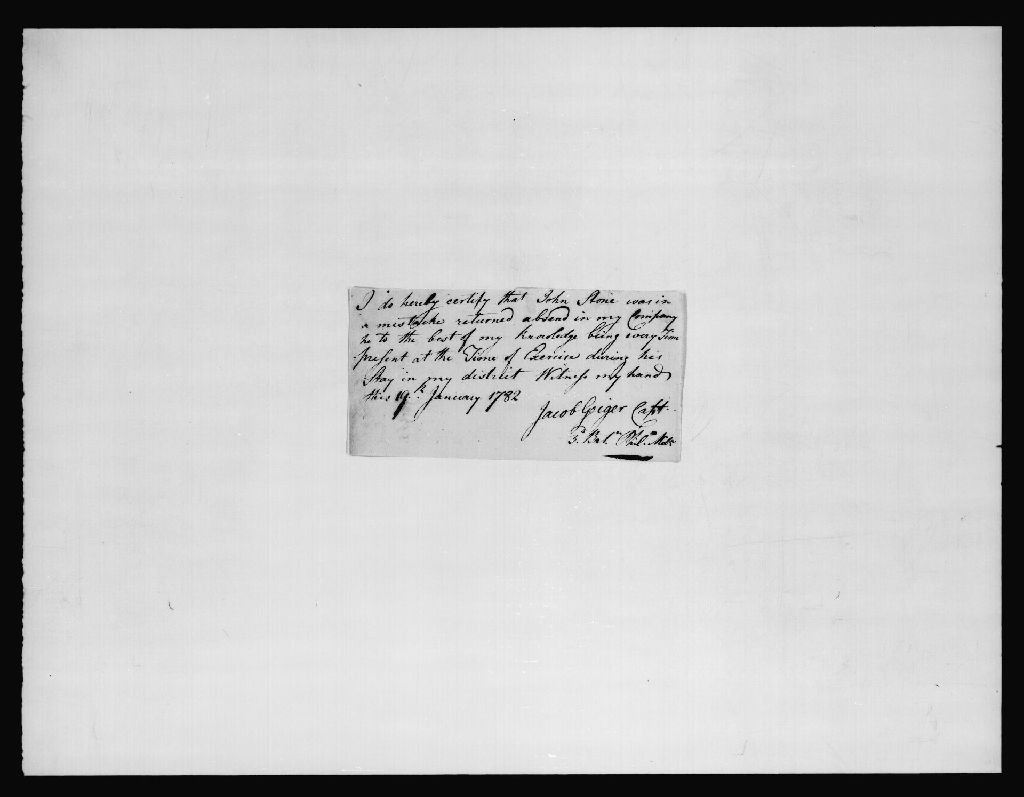 I do hereby certify that John Stone was in
a mistacke returned absend in my Company
he to the best of my knowledge being evay Time
present at the Time of Exercise during his
Stay in my district Witness my hand
this 19th January 1782
Jacob Geiger Capt.
3d Batn Phila Mila